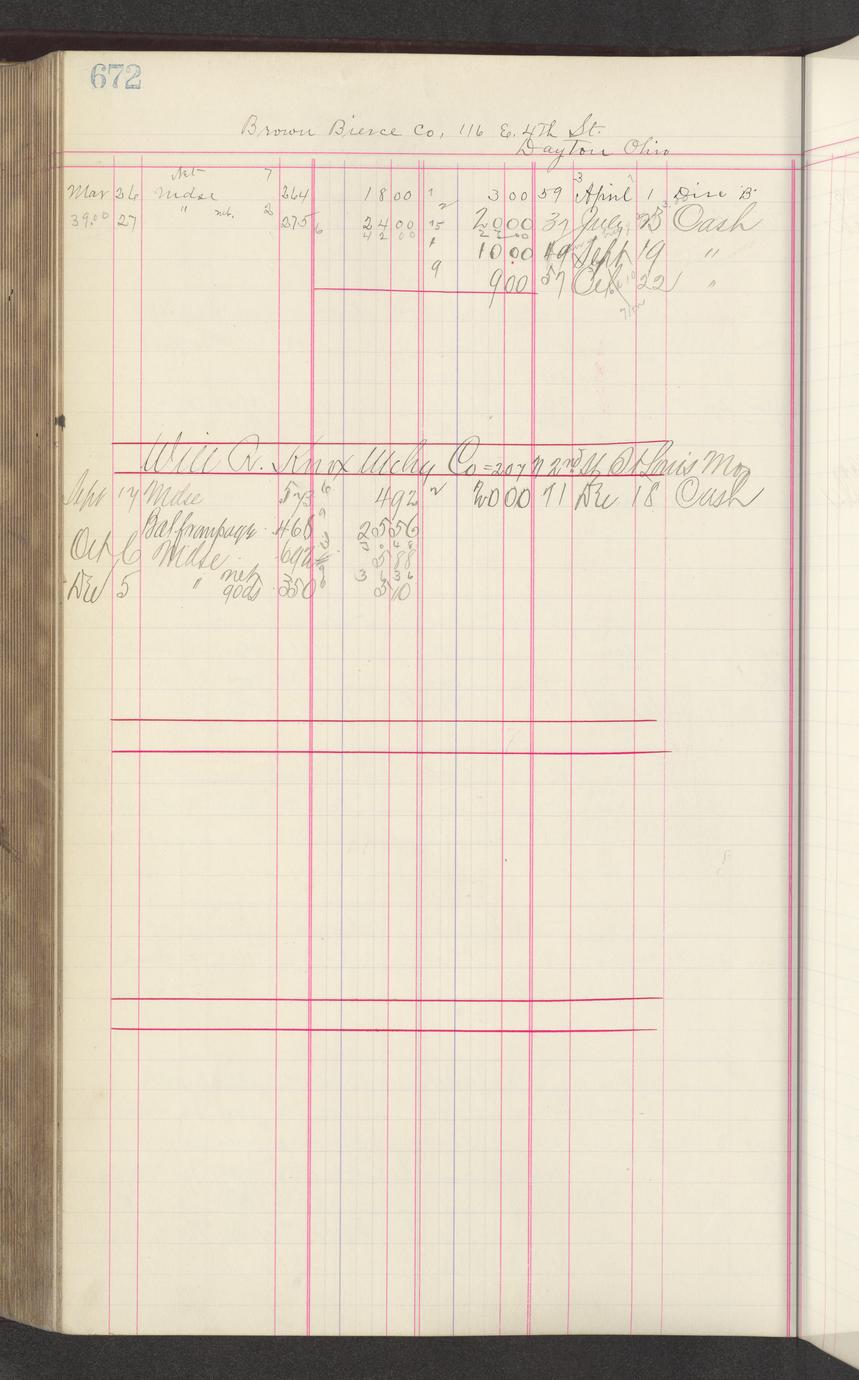 672
Brown Bierce Co, 116 E. 4th St.
Dayton Ohio
Net 7
Mar 26 Mdse 264 18 00 1 3 00 59 April 1 Disc B
39.00 27 " net. 2 275 24 00 15 20 00 37 July 23 Cash
42 00 22 00
1 10 00 49 Sept 19 "
9 9 00 57 Oct 22 "
Will R. Knox Co = 207 N 2nd St St Louis Mo
Sept 17 Mdse 573 6 4 92 2 20 00 71 Dec 18 Cash
Bal from page 468 9 25 56
30 48
Oct 6 Mdse 692 5 88
36 36
Dec 5 " net gods 350 5 10